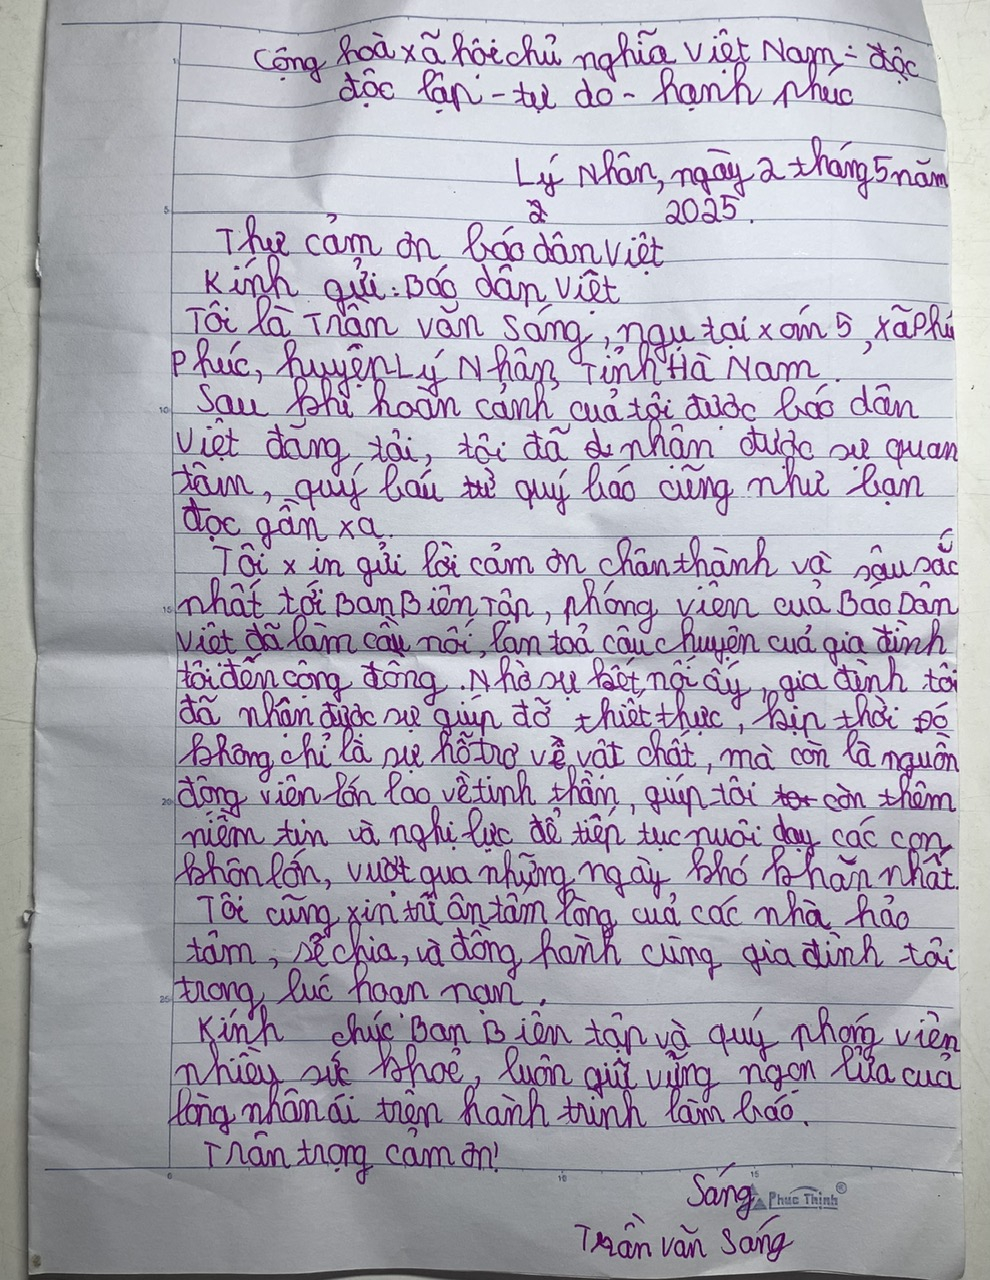 Cộng hoà xã hôi chủ nghĩa Việt Nam - độc
độc lập - tự do - hạnh phúc
Lý Nhân, ngày 2 tháng 5 năm
2 2025.
Thư cảm ơn báo dân việt
Kính gửi: Báo dân việt
Tôi là Trần văn Sáng, ngụ tại xóm 5, xã Phú
Phúc, huyện Lý Nhân, Tỉnh Hà Nam.
Sau khi hoàn cảnh cuả tôi được báo dân
việt đăng tải, tôi đã nhận được sự quan
tâm, quý báu từ quý báo cũng như bạn
đọc gần xa.
Tôi xin gửi lời cảm ơn chân thành và sâu sắc
nhất tới Ban Biên Tập, phóng viên cuả Báo Dân
Việt đã làm cầu nối, lan toả câu chuyện cuả gia đình
tôi đến công đồng. Nhờ sự kết nối ấy, gia đình tôi
đã nhận được sự giúp đỡ thiết thực, kịp thời Đó
không chỉ là sự hỗ trợ về vật chất, mà còn là nguồn
động viên lớn lao về tinh thần, giúp tôi còn thêm
niềm tin và nghị lực để tiếp tục nuôi dạy các con
khôn lớn, vượt qua những ngày khó khăn nhất.
Tôi cũng xin tri ân tâm lòng cuả các nhà hảo
tâm, sẻ chia, và đồng hành cùng gia đình tôi
trong lúc hoạn nạn.
Kính chúc Ban Biên tập và quý phóng viên
nhiều sức khoẻ, luôn giữ vững ngọn lửa cuả
lòng nhân ái trên hành trình làm báo.
Trân trọng cảm ơn!
Sáng
Phúc Thịnh®
Trần văn Sáng
5
10
15
20
25
0
10
15